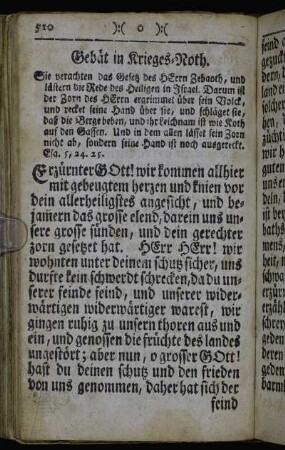 510 ):( o ):(
Gebät in Krieges-Noth.
Sie verachten das Gesetz des HErrn Zebaoth, und
lästern die Rede des Heiligen in Israel. Darum ist
der Zorn des HErrn ergrimmet über sein Volck,
und recket seine Hand über sie, und schläget sie,
daß die Berge beben, und ihr Leichnam ist wie Koth
auf den Gassen. Und in dem allen lässet sein Zorn
nicht ab, sondern seine Hand ist noch ausgereckt.
Esa. 5, 24. 25.
Erzürnter GOtt! wir kommen allhier
mit gebeugtem herzen und knien vor
dein allerheiligstes angesicht, und be-
jamern das grosse elend, darein uns un-
sere grosse sünden, und dein gerechter
zorn gesetzt hat. HErr HErr! wir
wohnten unter deinem schutz sicher, uns
durfte kein schwerdt schrecken, da du un-
serer feinde feind, und unserer wider-
wärtigen widerwärtiger warest, wir
gingen ruhig zu unsern thoren aus und
ein, und genossen die früchte des landes
ungestört; aber nun, o grosser GOtt!
hast du deinen schutz und den frieden
von uns genommen, daher hat sich der
feind